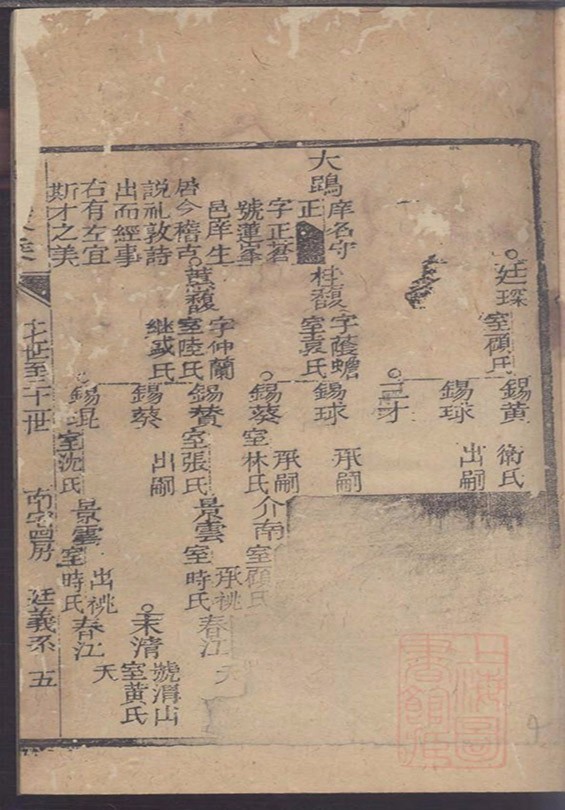 廷琛
室顧氏
錫黃
衛氏
錫球
出嗣
三才
大鵾
庠名守
正
字正蒼
號蓮峯
邑庠生
居今稽古
說礼敦詩
出而經事
右有左宜
斯才之美
桂馥
字蔭蟾
室袁氏
錫球
承嗣
錫葵
室林氏
承嗣
介南
室顧氏
蕙馥
字仲蘭
室陸氏
繼或氏
錫賛
室張氏
景雲
承祧
室時氏
春江
天
錫葵
出嗣
末清
號渭山
室黃氏
錫琨
室沈氏
景雲
出祧
室時氏
春江
天
世至二十世
房
廷義系
五
上海圖書館藏